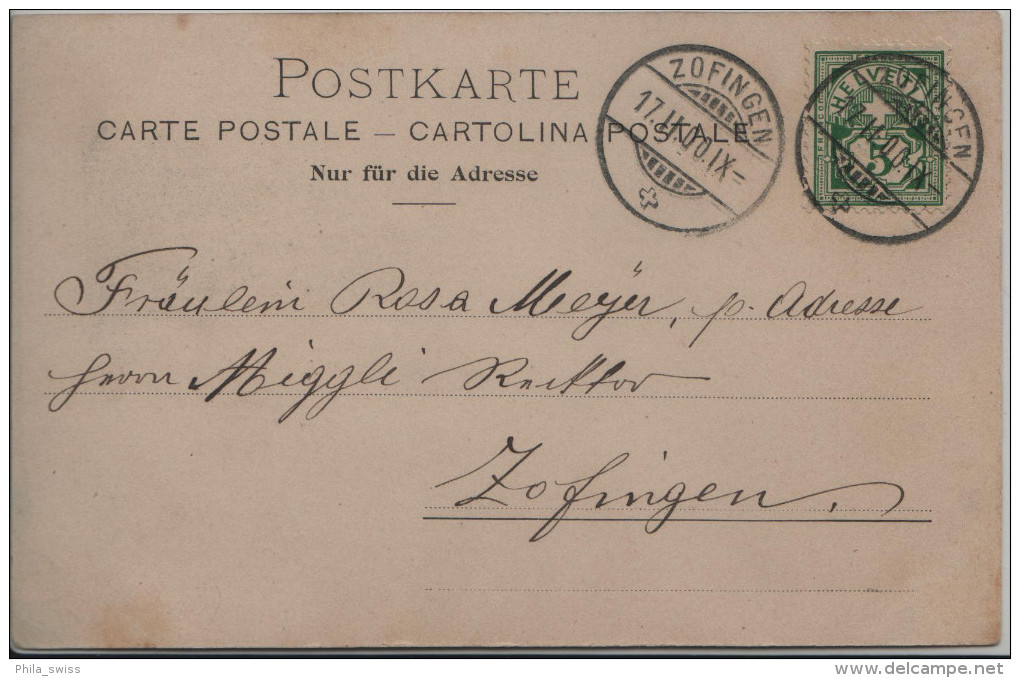 POSTKARTE
CARTE POSTALE – CARTOLINA POSTALE
Nur für die Adresse
ZOFINGEN
HELVETIA
5
Fräulein Rosa Meÿer, p. Adresse
Herrn Miggli Recktor
Zofingen.
Phila_swiss
http://www.delcampe.net